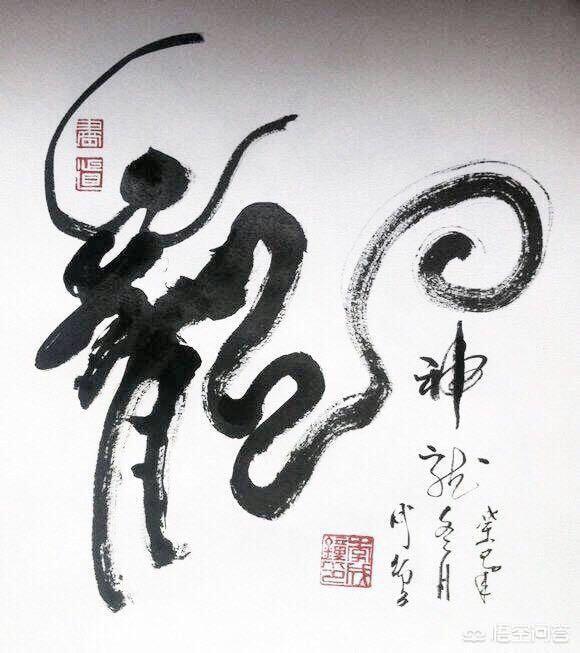 龍
神龍
癸巳年
冬月
悟空问答